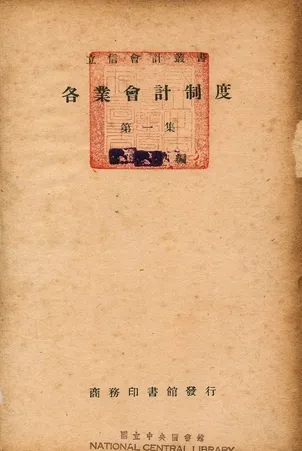 立信會計叢書
各業會計制度
第一集
編
商務印書館發行
國立中央圖書館
NATIONAL CENTRAL LIBRARY